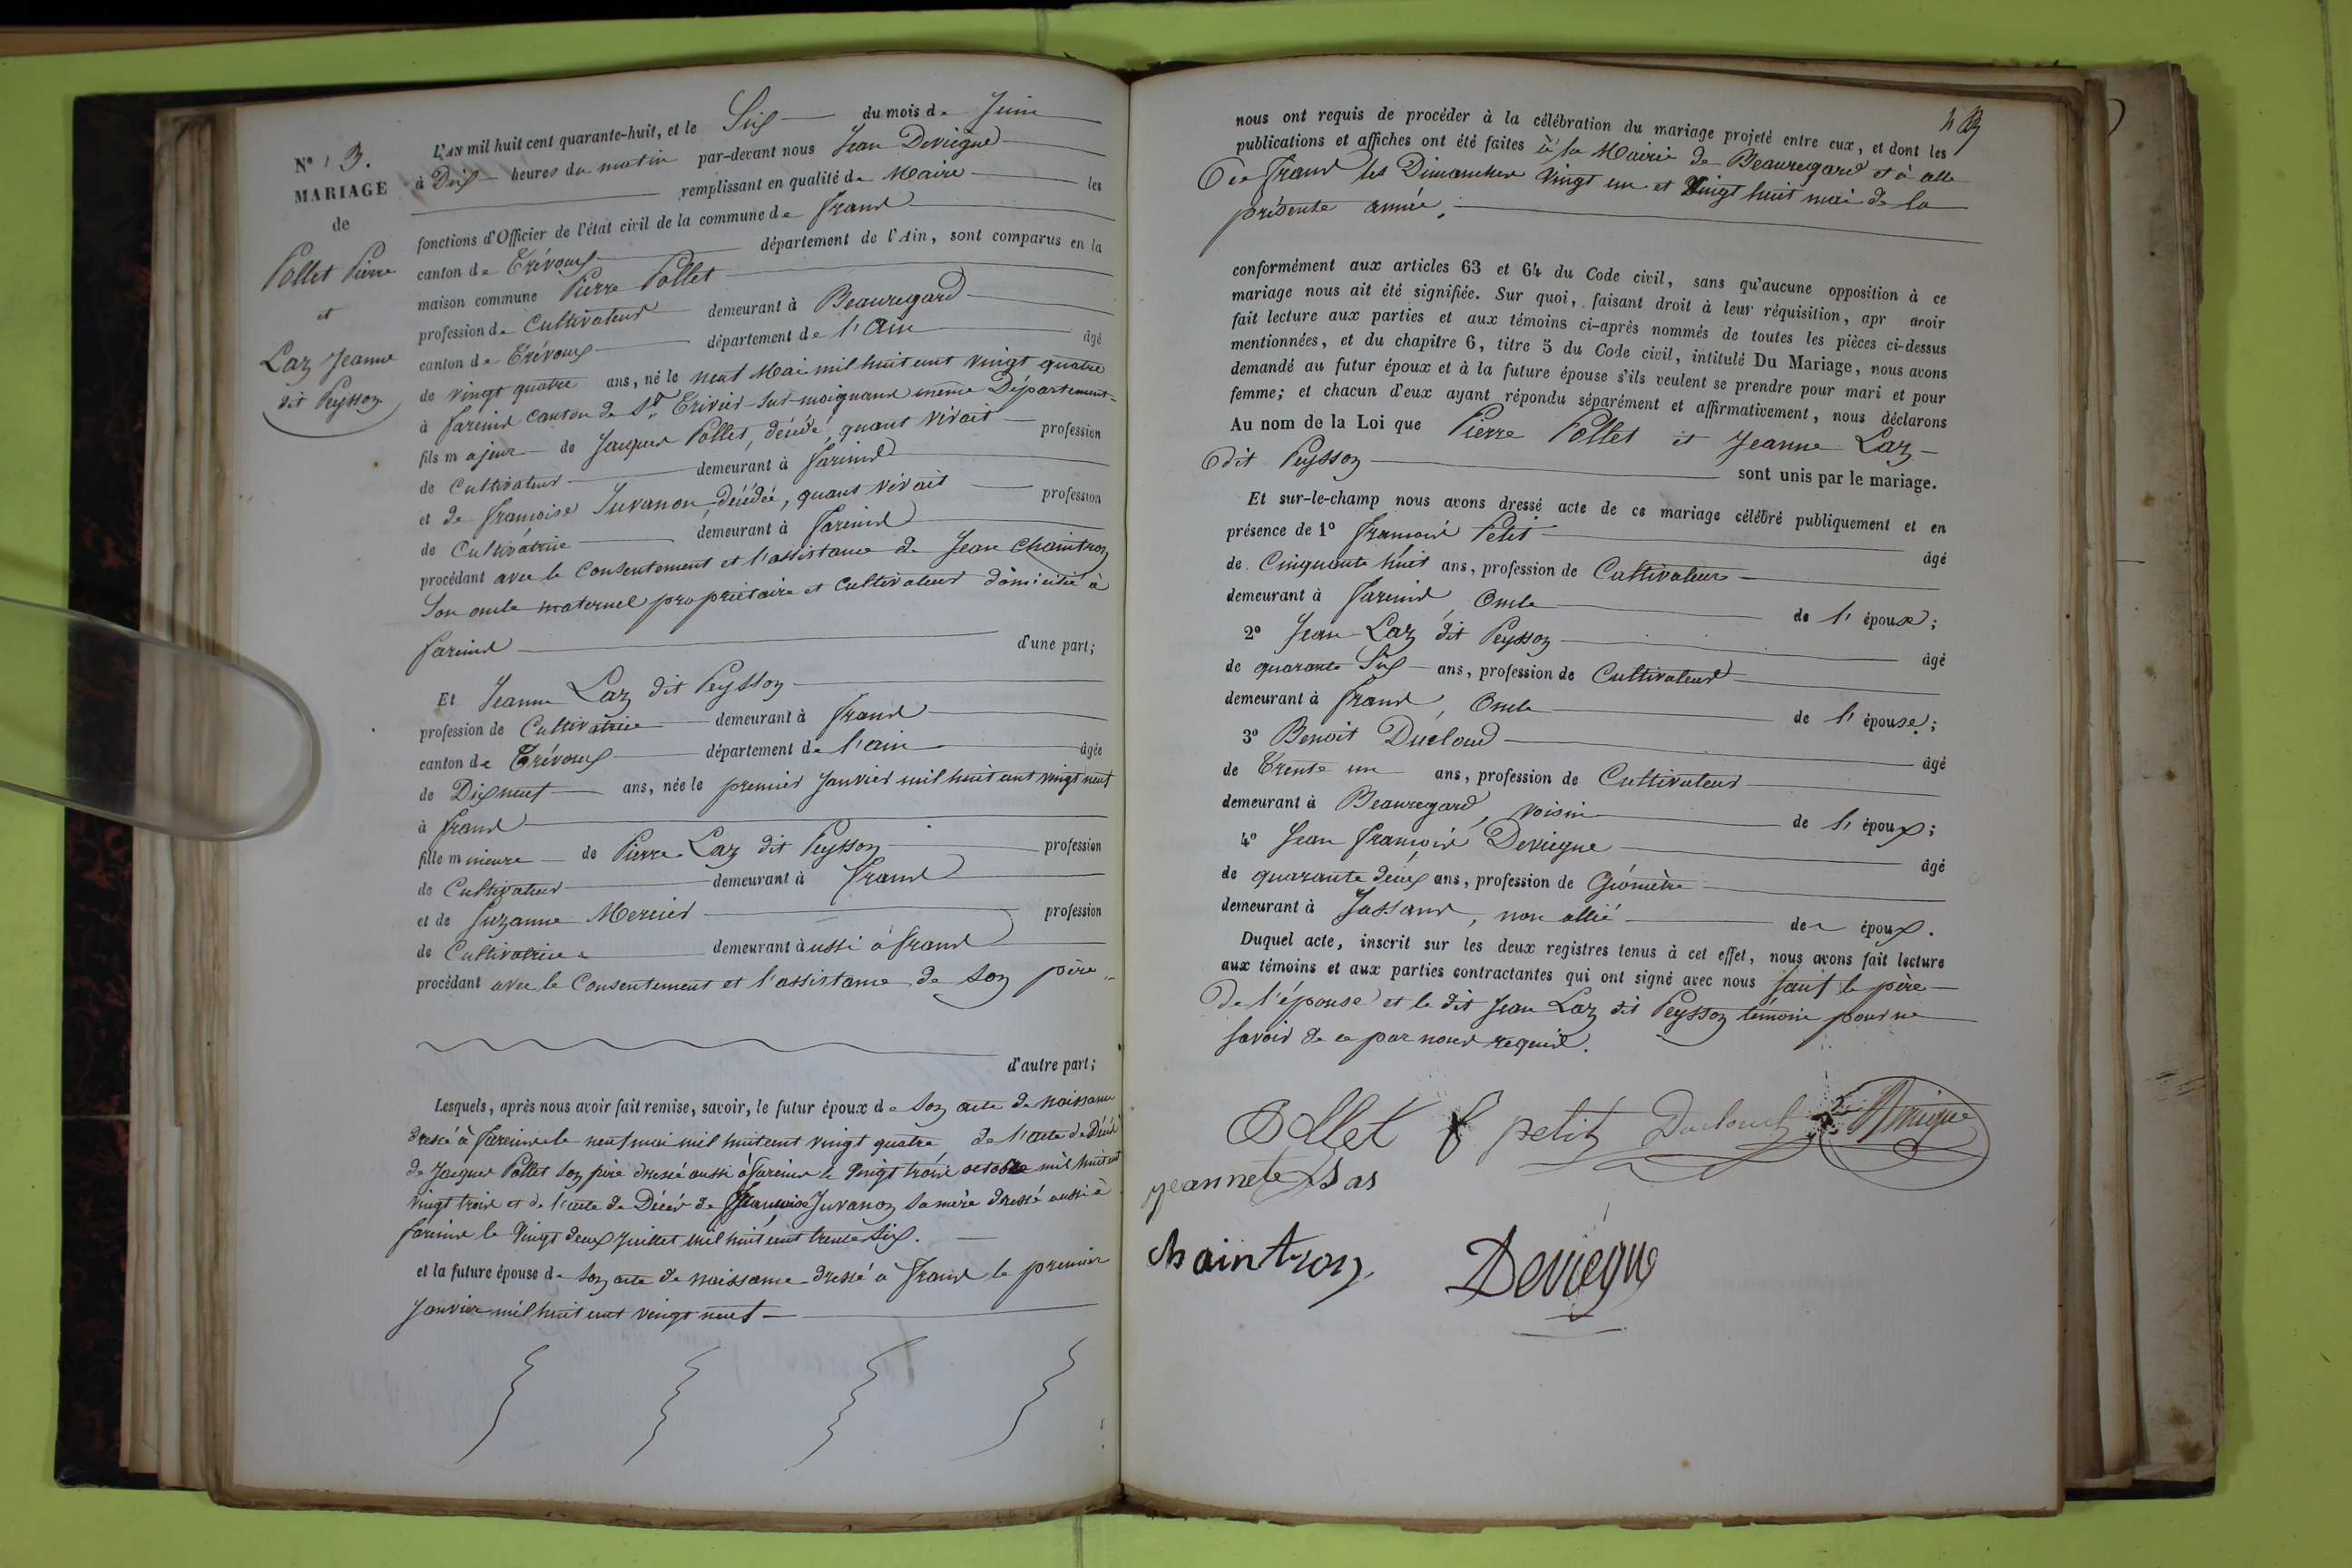 N° 3.
MARIAGE
de
Pollet Pierre
et
Laz Jeanne
dit Peysson
L'AN mil huit cent quarante-huit, et le Six du mois de Juin
à Dix heures du matin par-devant nous Jean Deviègne
remplissant en qualité de Maire les
fonctions d'Officier de l'état civil de la commune de frans
canton de Trévoux département de l'Ain, sont comparus en la
maison commune Pierre Pollet
profession de Cultivateur demeurant à Beauregard
canton de Trévoux département de l'Ain âgé
de vingt quatre ans, né le neuf Mai mil huit cent vingt quatre
à fareins canton de St Trivier sur moignans même Département
fils majeur de Jacques Pollet, décédé, quant vivait profession
de Cultivateur demeurant à fareins
et de françoise Juvanon, décédée, quant vivait profession
de Cultivatrice demeurant à fareins
procédant avec le Consentement et l'assistance de Jean Chaintron
Son oncle maternel propriétaire et Cultivateur domicilié à
fareins d'une part;
Et Jeanne Laz dit Peysson
profession de Cultivatrice demeurant à frans
canton de Trévoux département de l'ain âgée
de Dix neuf ans, née le premier Janvier mil huit cent vingt neuf
à frans
fille mineure de Pierre Laz dit Peysson profession
de Cultivateur demeurant à frans
et de Suzanne Mercier profession
de Cultivatrice demeurant aussi à frans
procédant avec le Consentement et l'assistance de Son père
d'autre part;
Lesquels, après nous avoir fait remise, savoir, le futur époux de Son acte de naissance
dressé à fareins le neuf mai mil huit cent vingt quatre de l'acte de Décès
de Jacques Pollet Son père dressé aussi à fareins le Vingt trois octobre mil huit cent
vingt trois et de l'acte de Décès de françoise Juvanon Sa mère dressé aussi à
fareins le Vingt deux Juillet mil huit cent trente Six.
et la future épouse de Son acte de naissance dressé à frans le premier
Janvier mil huit cent vingt neuf
nous ont requis de procéder à la célébration du mariage projeté entre eux, et dont les
publications et affiches ont été faites à la Mairie de Beauregard et à celle
De frans les Dimanches Vingt un et Vingt huit mai de la
présente année,
conformément aux articles 63 et 64 du Code civil, sans qu'aucune opposition à ce
mariage nous ait été signifiée. Sur quoi, faisant droit à leur réquisition, apr avoir
fait lecture aux parties et aux témoins ci-après nommés de toutes les pièces ci-dessus
mentionnées, et du chapitre 6, titre 5 du Code civil, intitulé Du Mariage, nous avons
demandé au futur époux et à la future épouse s'ils veulent se prendre pour mari et pour
femme; et chacun d'eux ayant répondu séparément et affirmativement, nous déclarons
Au nom de la Loi que Pierre Pollet et Jeanne Laz
dit Peysson sont unis par le mariage.
Et sur-le-champ nous avons dressé acte de ce mariage célébré publiquement et en
présence de 1° françois Petit âgé
de Cinquante huit ans, profession de Cultivateur
demeurant à fareins, Oncle de l'épouse;
2° Jean Laz dit Peysson âgé
de quarante Six ans, profession de Cultivateur
demeurant à frans, Oncle de l'épouse;
3° Benoit Ducloud âgé
de Trente un ans, profession de Cultivateur
demeurant à Beauregard, voisin de l'époux;
4° Jean françois Deviegne âgé
de quarante deux ans, profession de Géomètre
demeurant à Jassans, non allié des époux.
Duquel acte, inscrit sur les deux registres tenus à cet effet, nous avons fait lecture
aux témoins et aux parties contractantes qui ont signé avec nous sauf le père
De l'épouse et le dit Jean Laz dit Peysson témoin pour ne
Savoir de ce par nous requis.
Pollet f petit Ducloud Deviegne
jeannete Las
chaintron Deviegne